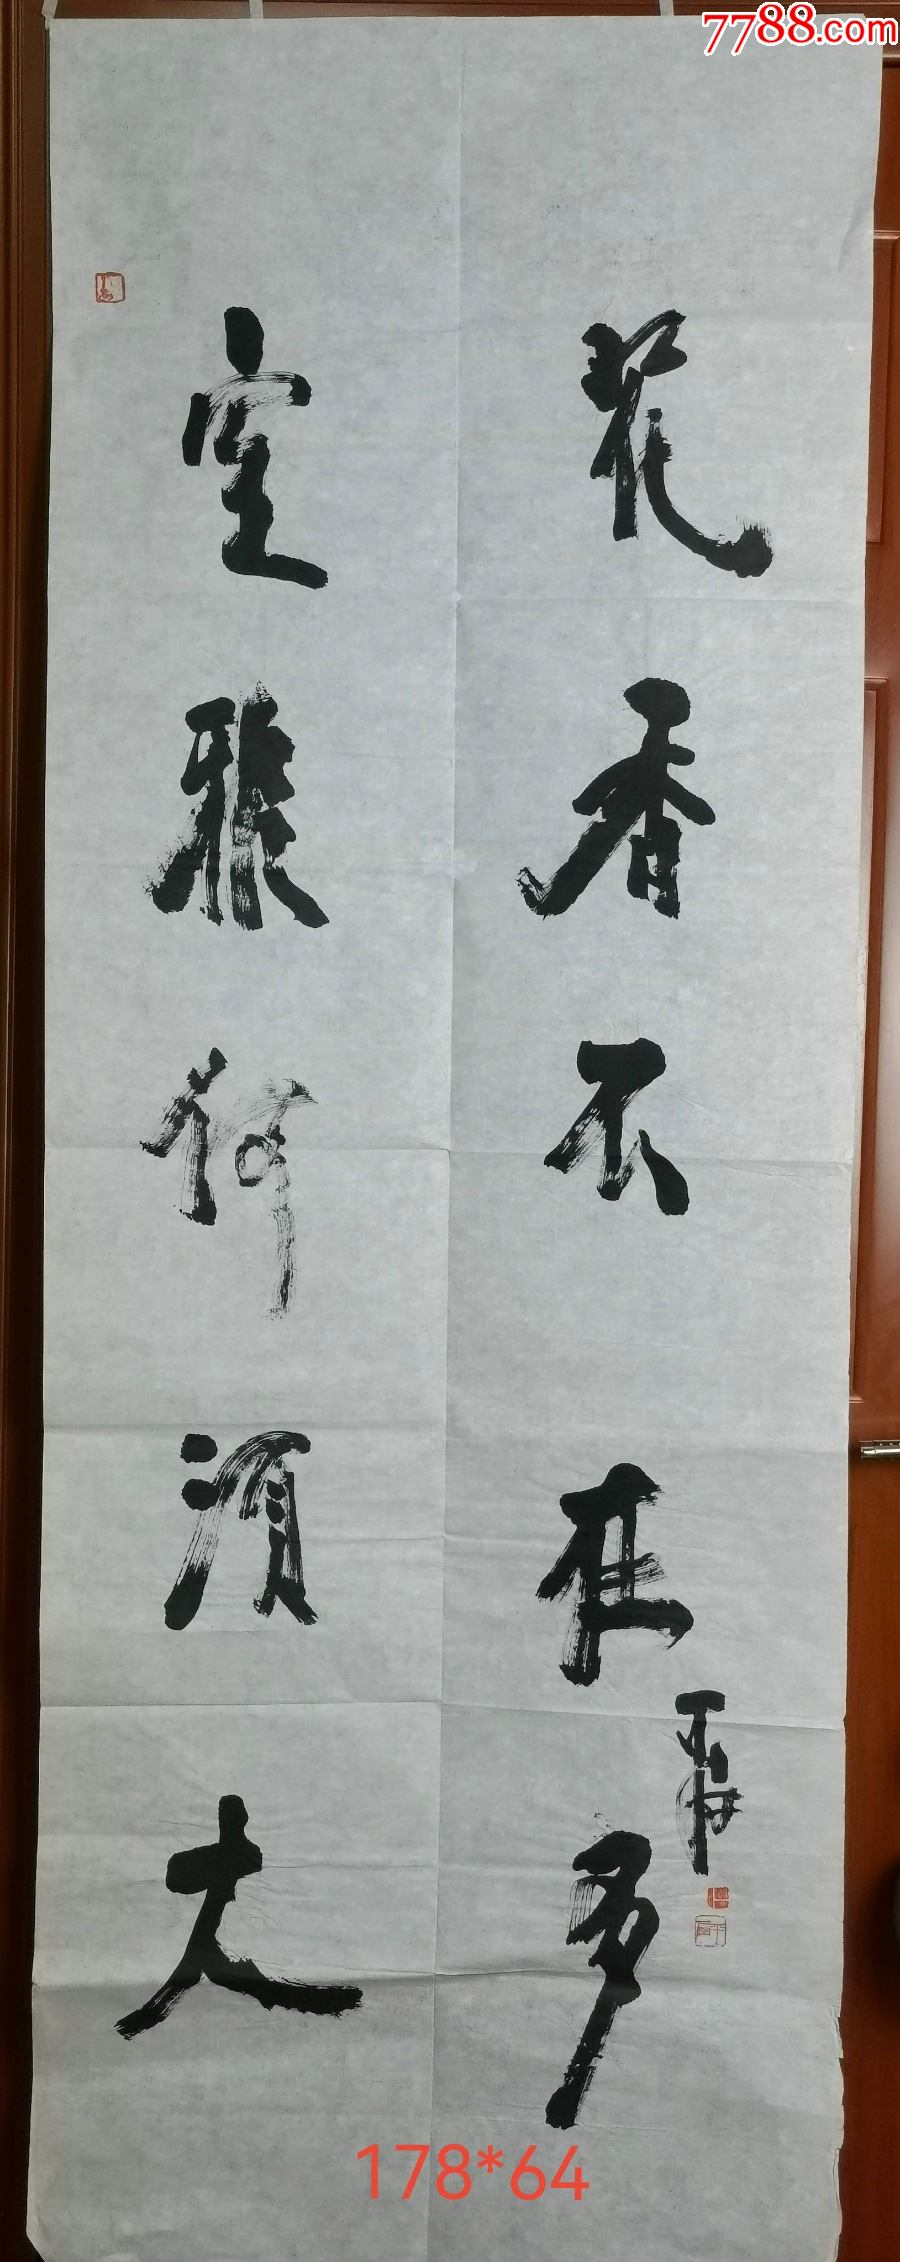 7788.com
室雅何須大
花香不在多
178*64